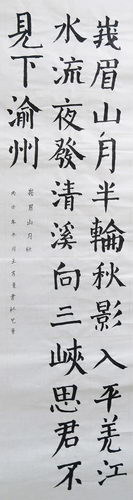 峨眉山月半輪秋影入平羌江
水流夜發清溪向三峽思君不
見下渝州
峨眉山月歌